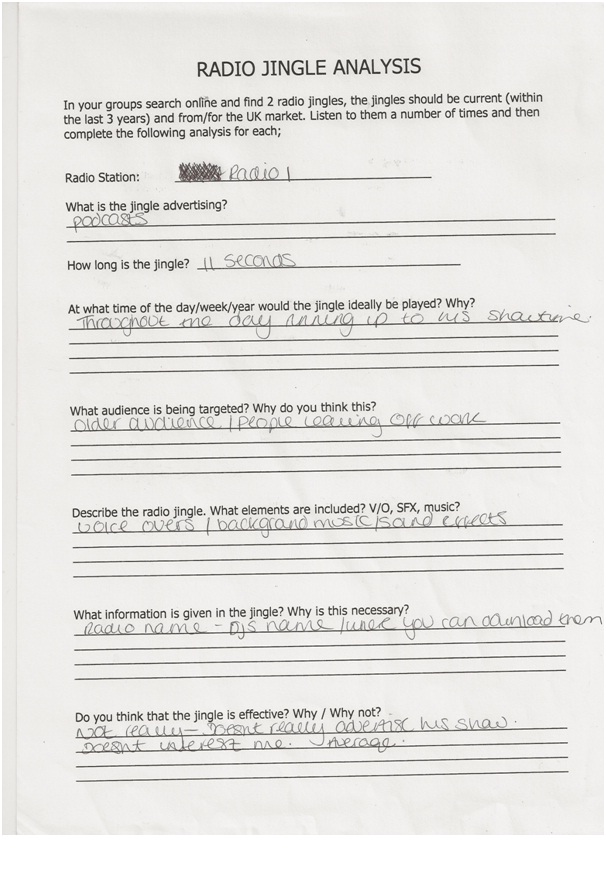 RADIO JINGLE ANALYSIS
In your groups search online and find 2 radio jingles, the jingles should be current (within
the last 3 years) and from/for the UK market. Listen to them a number of times and then
complete the following analysis for each;
Radio Station: Radio 1
What is the jingle advertising?
podcasts
How long is the jingle? 11 seconds
At what time of the day/week/year would the jingle ideally be played? Why?
Throughout the day running up to his showtime.
What audience is being targeted? Why do you think this?
older audience / people leaving off work
Describe the radio jingle. What elements are included? V/O, SFX, music?
voice overs / background music / sound effects
What information is given in the jingle? Why is this necessary?
Radio name - DJs name / where you can download them
Do you think that the jingle is effective? Why / Why not?
Not really - Doesnt really advertise his show.
Doesnt interest me. Average.